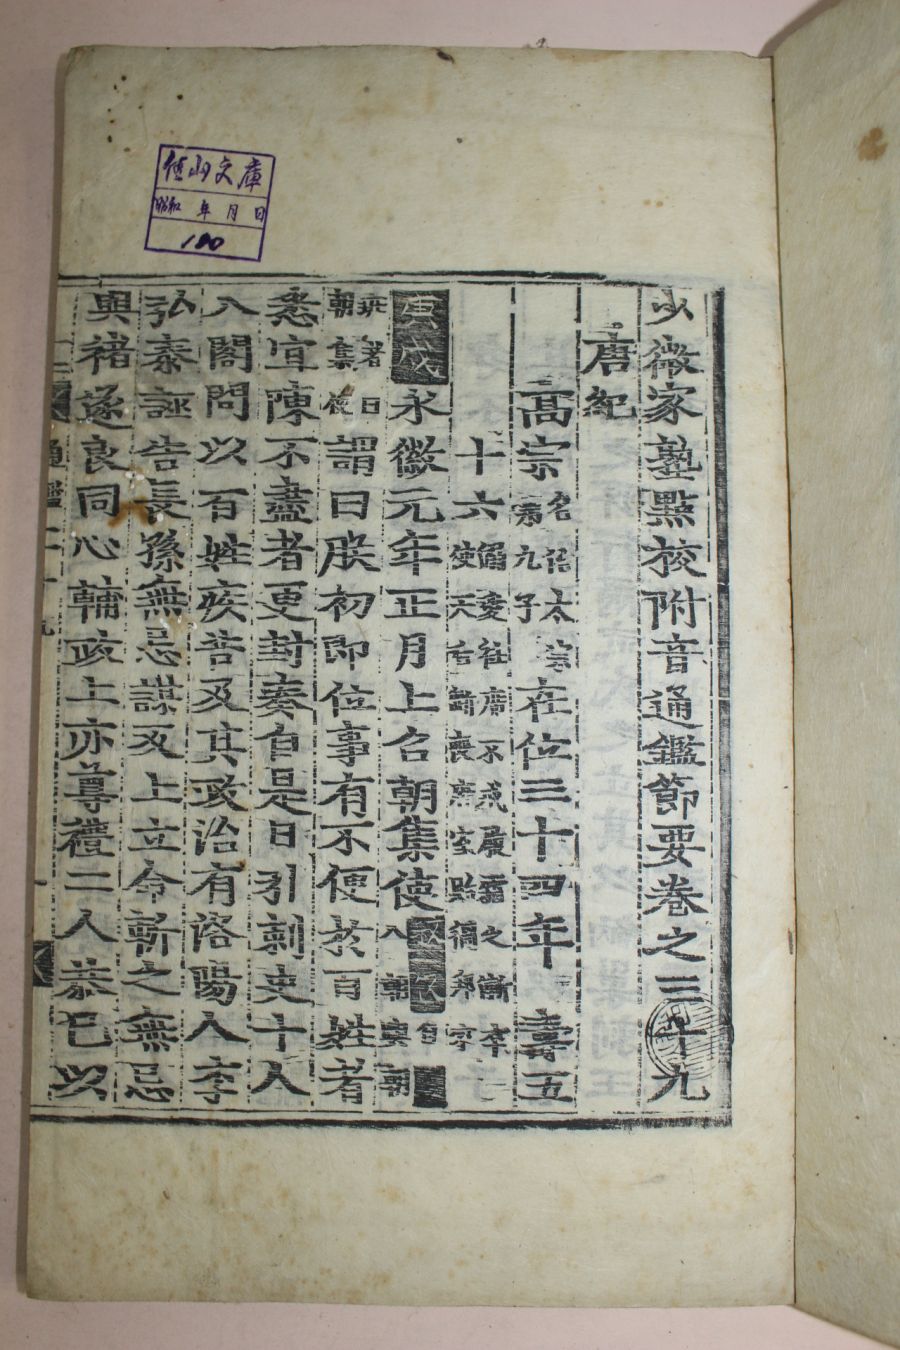 少微家塾點校附音通鑑節要卷之三十九
唐紀
高宗名治太宗第九子在位三十四年壽五
十六溺愛衽席不戒履霜之漸卒使天后斵喪唐室貽禍邦家
庚戌永徽元年正月上召朝集使八朝奧朝
班著曰朝集使謂曰朕初即位事有不便於百姓者
悉宜陳不盡者更封奏自是日引刺史十人
入閤問以百姓疾苦及其政治有洛陽人李
弘泰誣告長孫無忌謀反上立命斬之無忌
與褚遂良同心輔政上亦尊禮二人恭己以
通鑑三十九
文庫
昭和 年 月 日
100